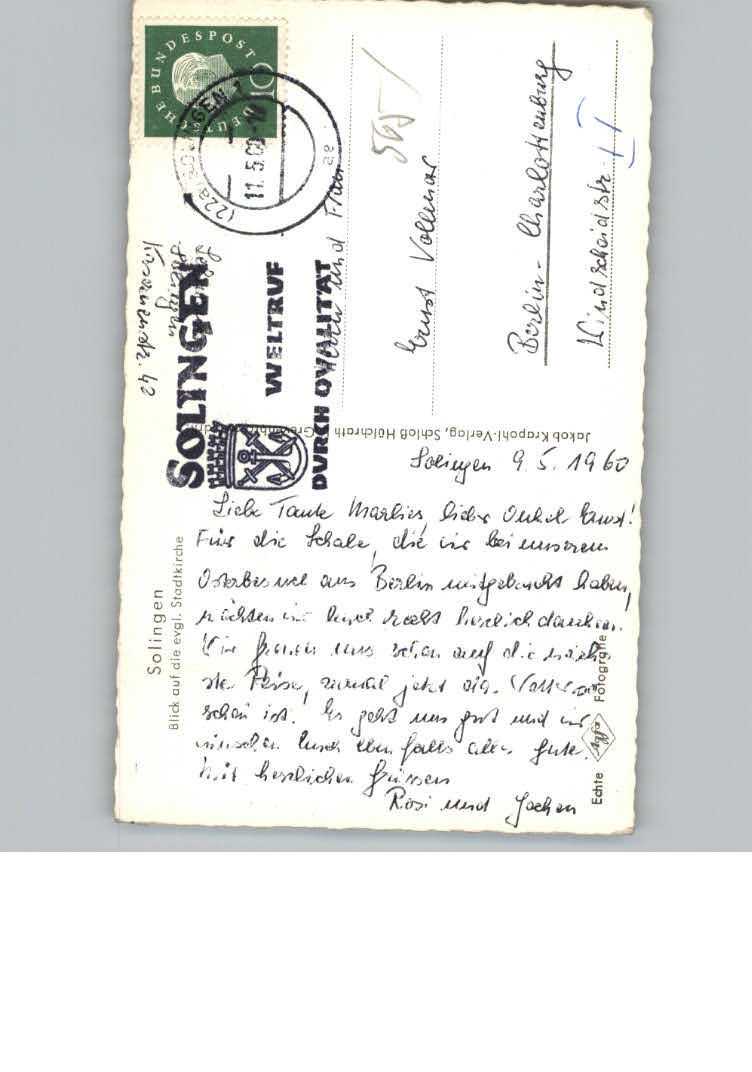 Solingen 9.5.1960
Liebe Tante Marlies, lieber Onkel Ernst!
Für die Schale, die wir bei unserem
Osterbesuch aus Berlin mitgebracht haben,
möchten wir Euch recht herzlich danken.
Wir freuen uns schon auf die näch-
ste Reise, zumal jetzt das
schön ist. Es geht uns gut und wir
wünschen Euch ebenfalls alles Gute.
Mit herzlichen Grüssen
Rosi und Jochen
Herrn und Frau
Ernst Vollmar
Berlin-Charlottenburg
Windscheidstr.
565
Solingen
42
DEUTSCHE BUNDESPOST
10
(22a) SOLINGEN 1
11.5.60
ae
SOLINGEN
WELTRUF
DURCH QUALITÄT
Jakob Krapohl-Verlag, Schloß Hülchrath
Solingen
Blick auf die evgl. Stadtkirche
Echte Agfa Fotografie